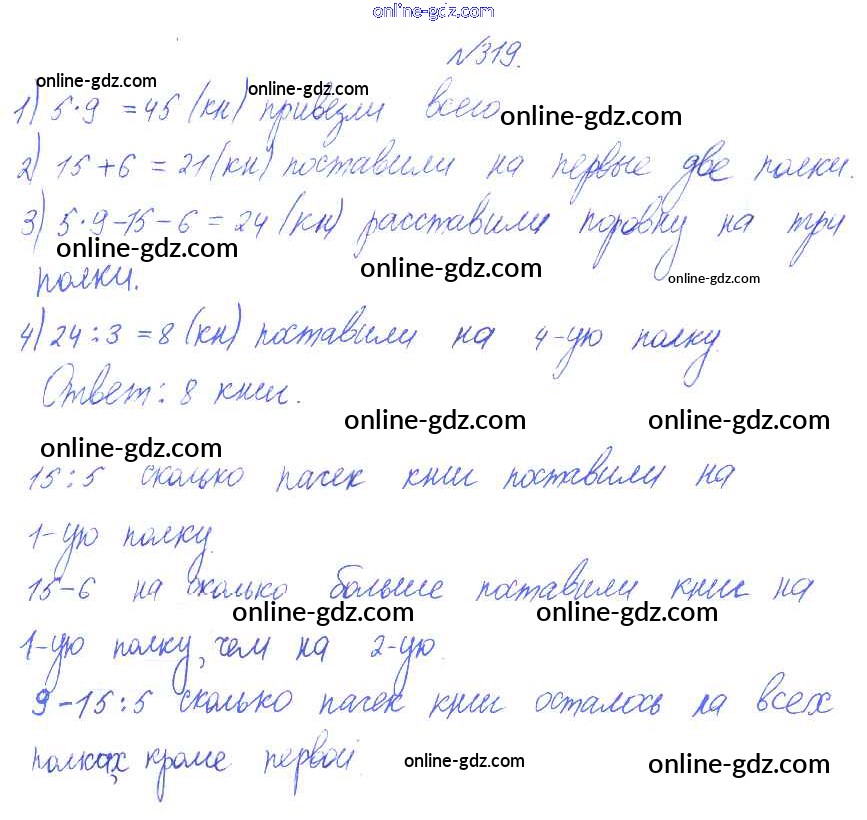 online-gdz.com
№319.
online-gdz.com online-gdz.com
1) 5·9 = 45 (кн) привезли всего online-gdz.com
2) 15+6 = 21 (кн) поставили на первые две полки.
3) 5·9-15-6 = 24 (кн) расставили поровну на три
online-gdz.com online-gdz.com online-gdz.com
полки.
4) 24:3 = 8 (кн) поставили на 4-ую полку.
Ответ: 8 книг.
online-gdz.com online-gdz.com online-gdz.com
15:5 сколько пачек книг поставили на
1-ую полку.
15-6 на сколько больше поставили книг на
online-gdz.com online-gdz.com
1-ую полку, чем на 2-ую.
9-15:5 сколько пачек книг осталось на всех
полках, кроме первой.
online-gdz.com online-gdz.com